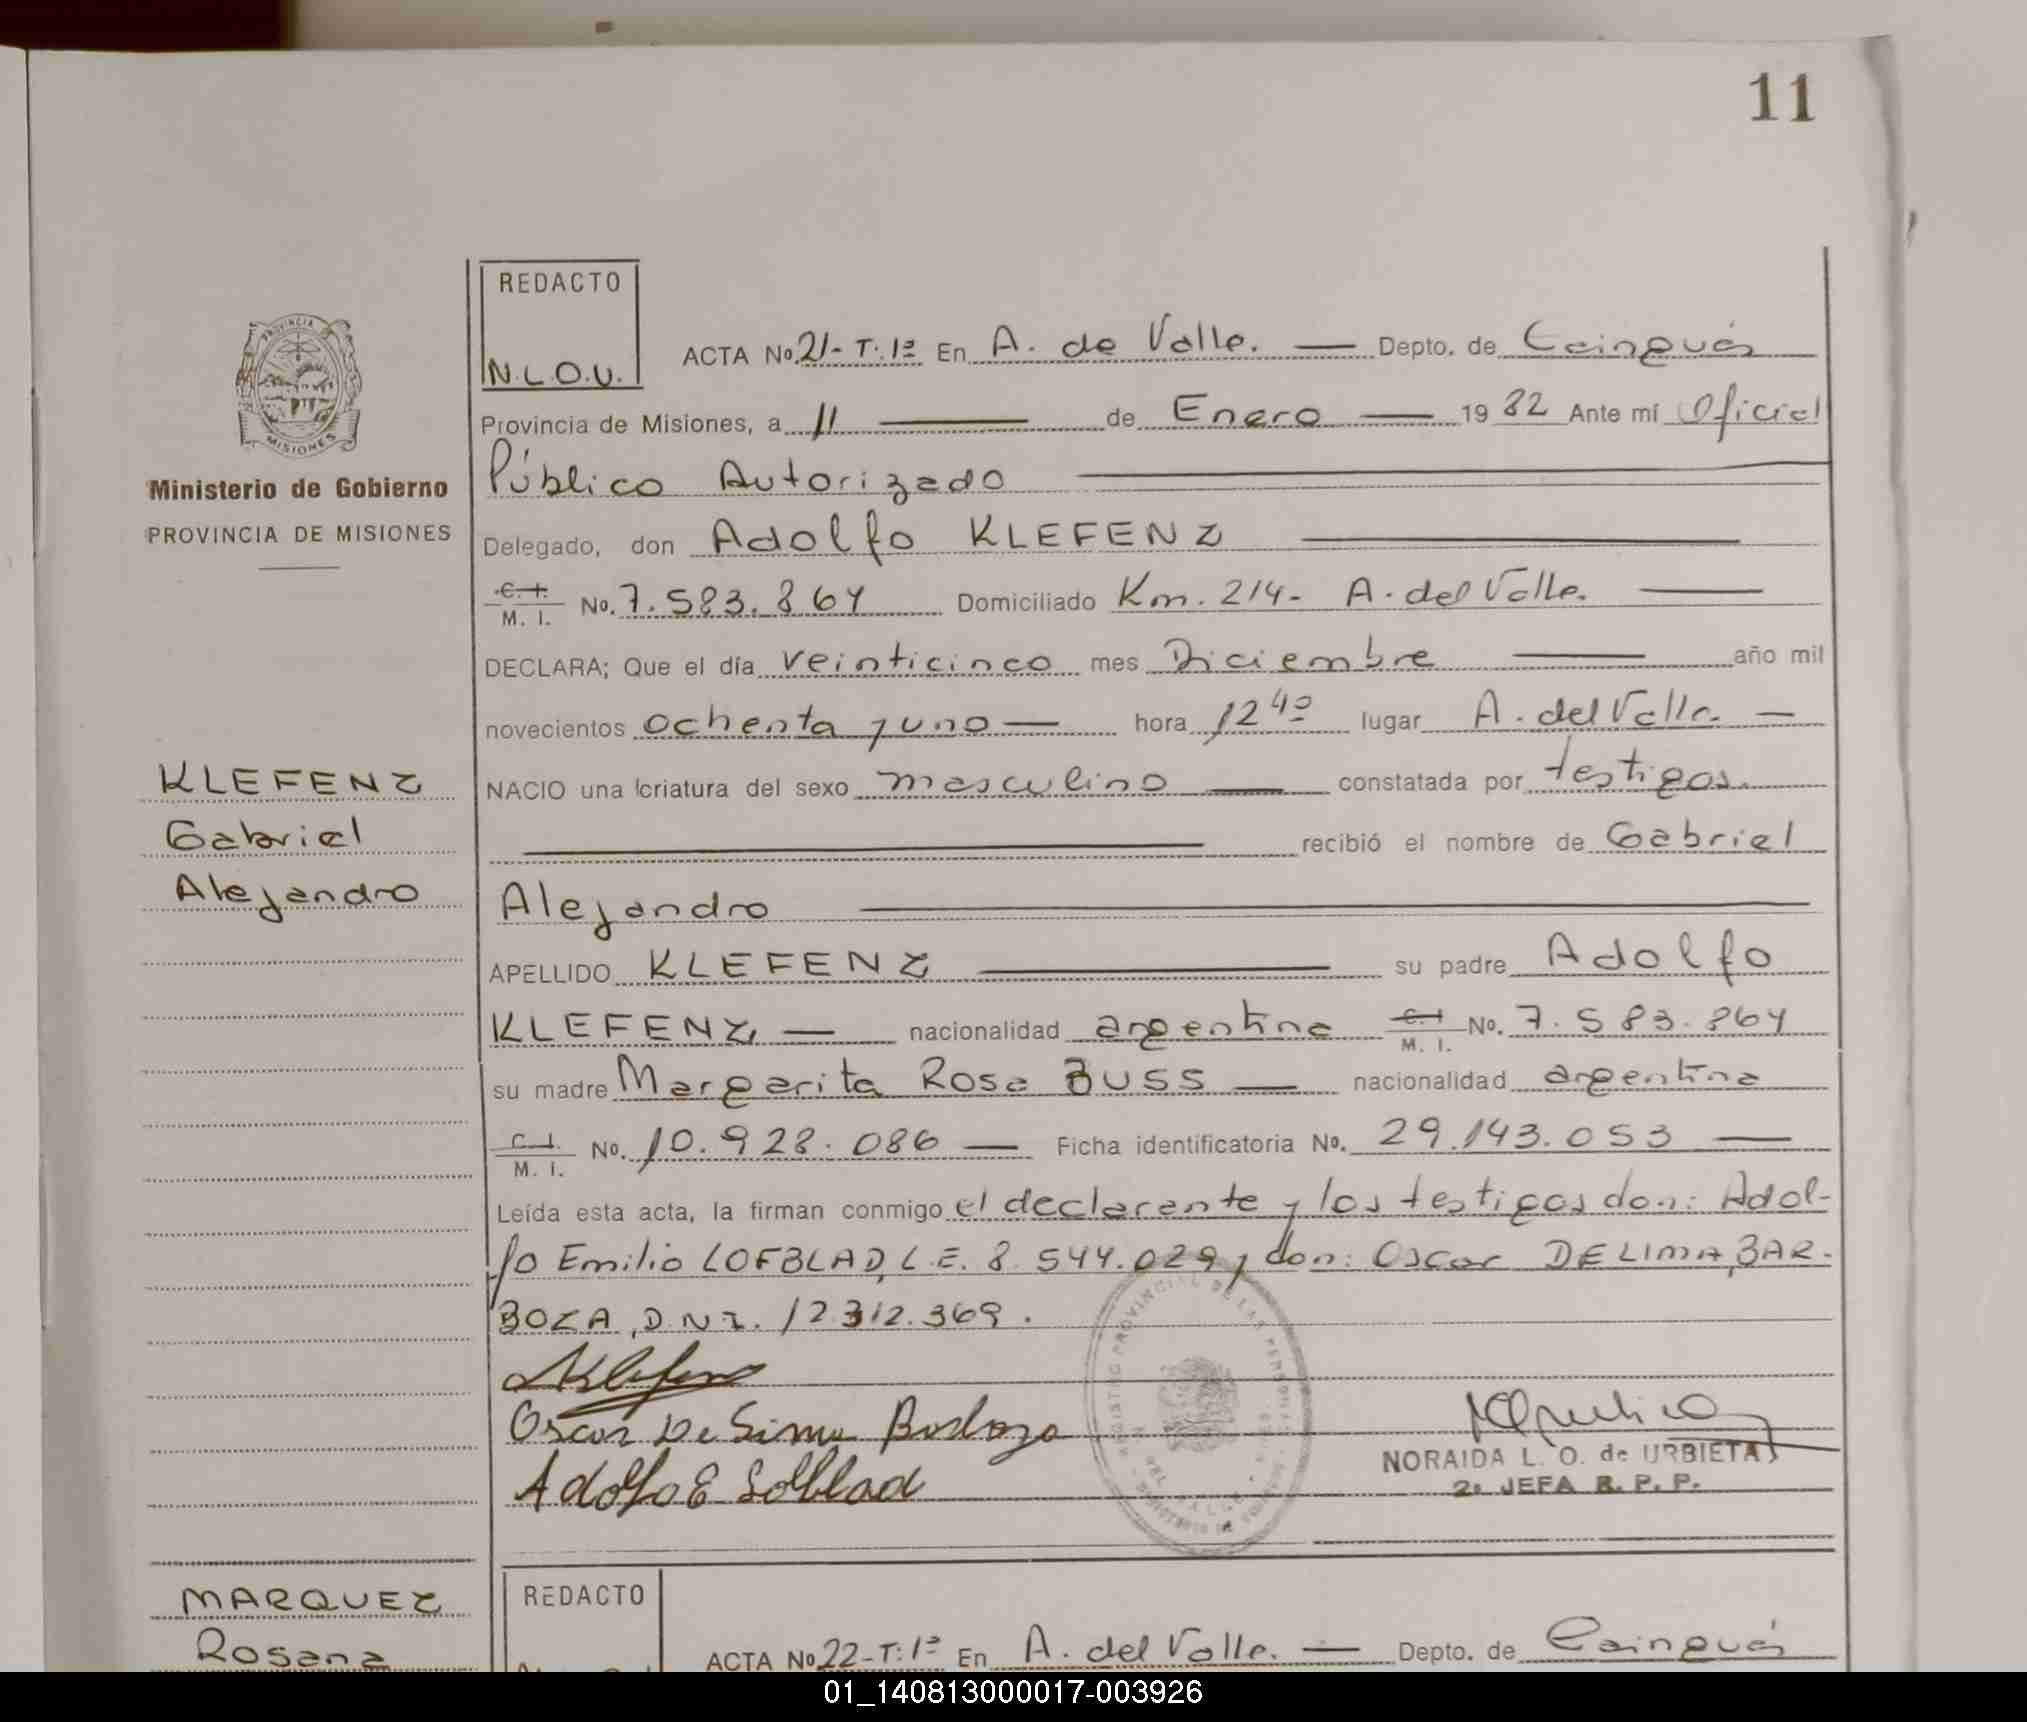 11
REDACTO
N.L.O.U.
PROVINCIA
MISIONES
Ministerio de Gobierno
PROVINCIA DE MISIONES
ACTA No. 21- T: 1ª En A. de Valle. — Depto. de Cainguás
Provincia de Misiones, a 11 — de Enero — 19 82 Ante mí Oficial
Público Autorizado
Delegado, don Adolfo KLEFENZ
C. I. M. I. No. 7.583.864 Domiciliado Km. 214- A. del Valle.
DECLARA; Que el día veinticinco mes Diciembre — año mil
novecientos ochenta y uno — hora 12 40 lugar A. del Valle. —
KLEFENZ
Gabriel
Alejandro
NACIO una criatura del sexo masculino — constatada por testigos.
recibió el nombre de Gabriel
Alejandro
APELLIDO KLEFENZ — su padre Adolfo
KLEFENZ, — nacionalidad argentina C. I. M. I. No. 7.583.864
su madre Margarita Rosa BUSS — nacionalidad argentina
C. I. M. I. No. 10.928.086 — Ficha identificatoria No. 29.143.053 —
Leída esta acta, la firman conmigo el declarente y los testigos don: Adol-
fo Emilio LOFBLAD, L.E. 8.544.029 y don: Oscar DE LIMA BAR-
BOZA, D.N.I. 12.312.369.
REGISTRO PROVINCIAL DE LAS PERSONAS
Oscar De Lima Barboza
Adolfo E Lofblad
NORAIDA L. O. de URBIETA
2ª JEFA R. P. P.
MARQUEZ
Rosana
REDACTO
ACTA No 22-T: 1ª En A. del Valle. — Depto. de Cainguás
01_140813000017-003926